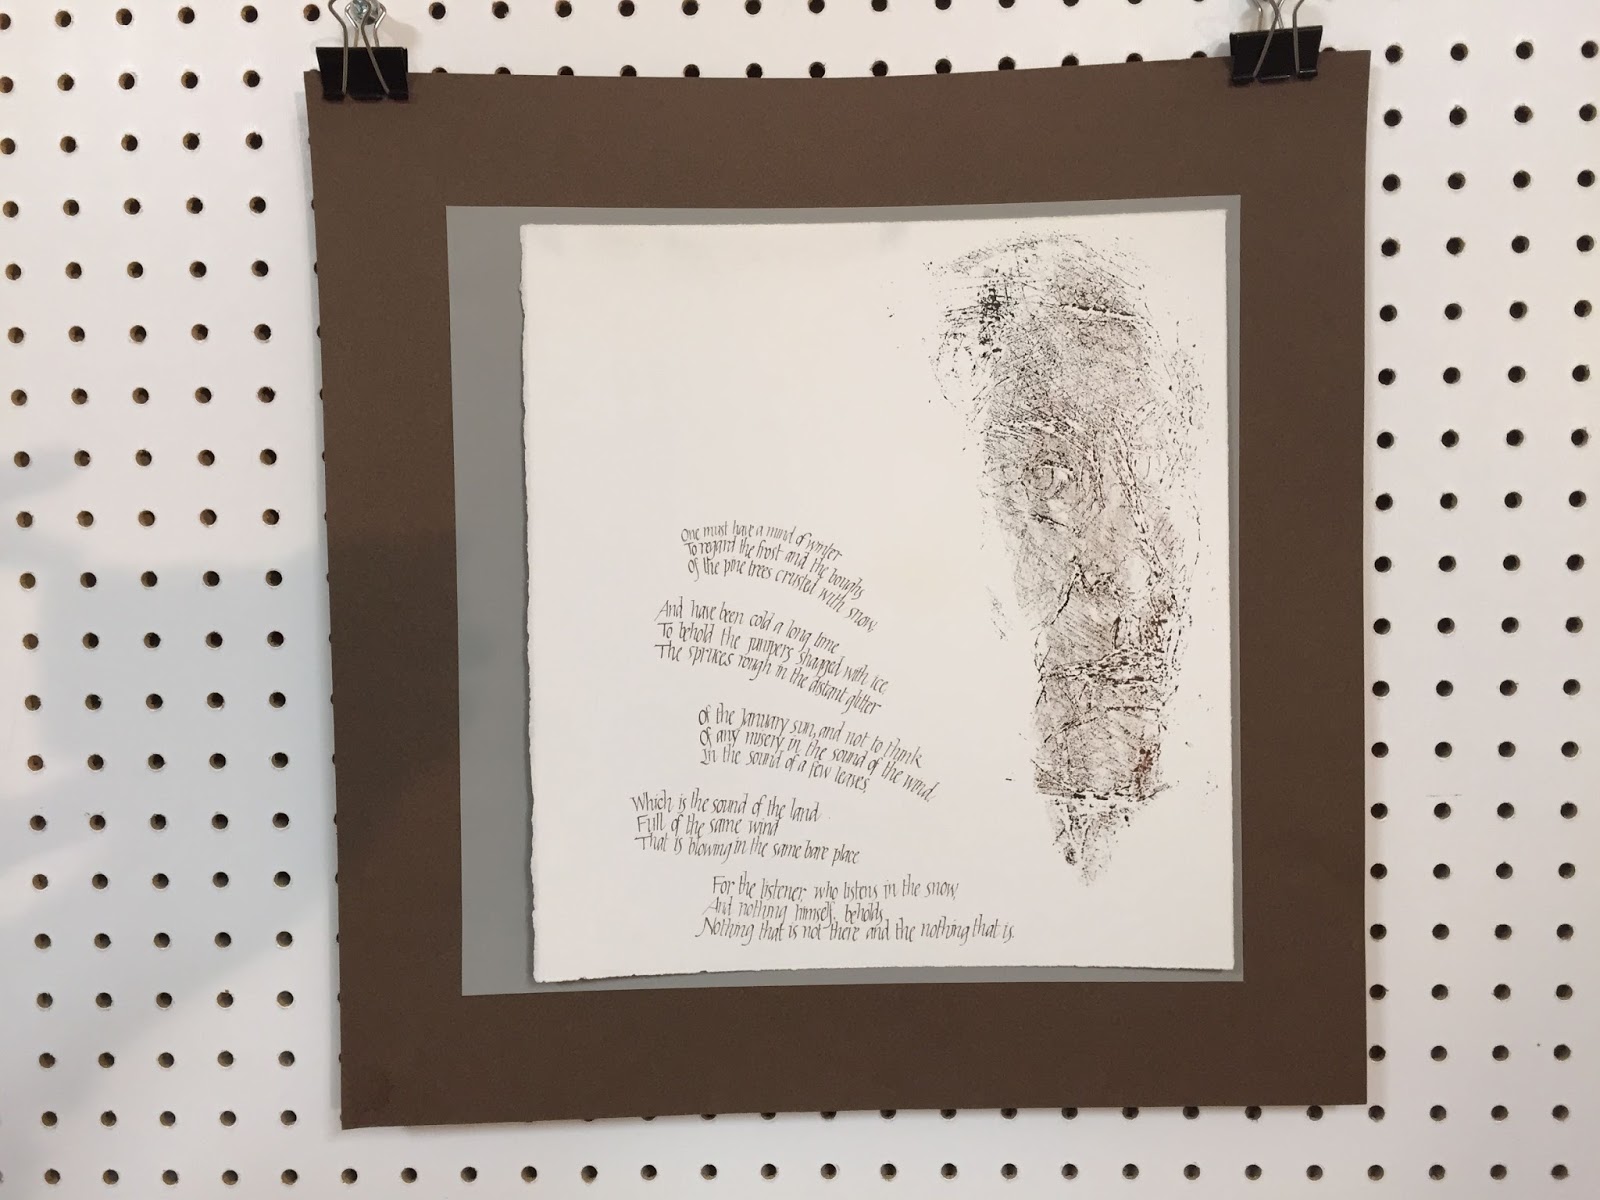 One must have a mind of winter
To regard the frost and the boughs
Of the pine trees crusted with snow,
And have been cold a long time
To behold the junipers shagged with ice,
The spruces rough in the distant glitter
Of the January sun, and not to think
Of any misery in the sound of the wind,
In the sound of a few leaves,
Which is the sound of the land
Full of the same wind
That is blowing in the same bare place
For the listener, who listens in the snow,
And nothing himself, beholds
Nothing that is not there and the nothing that is.